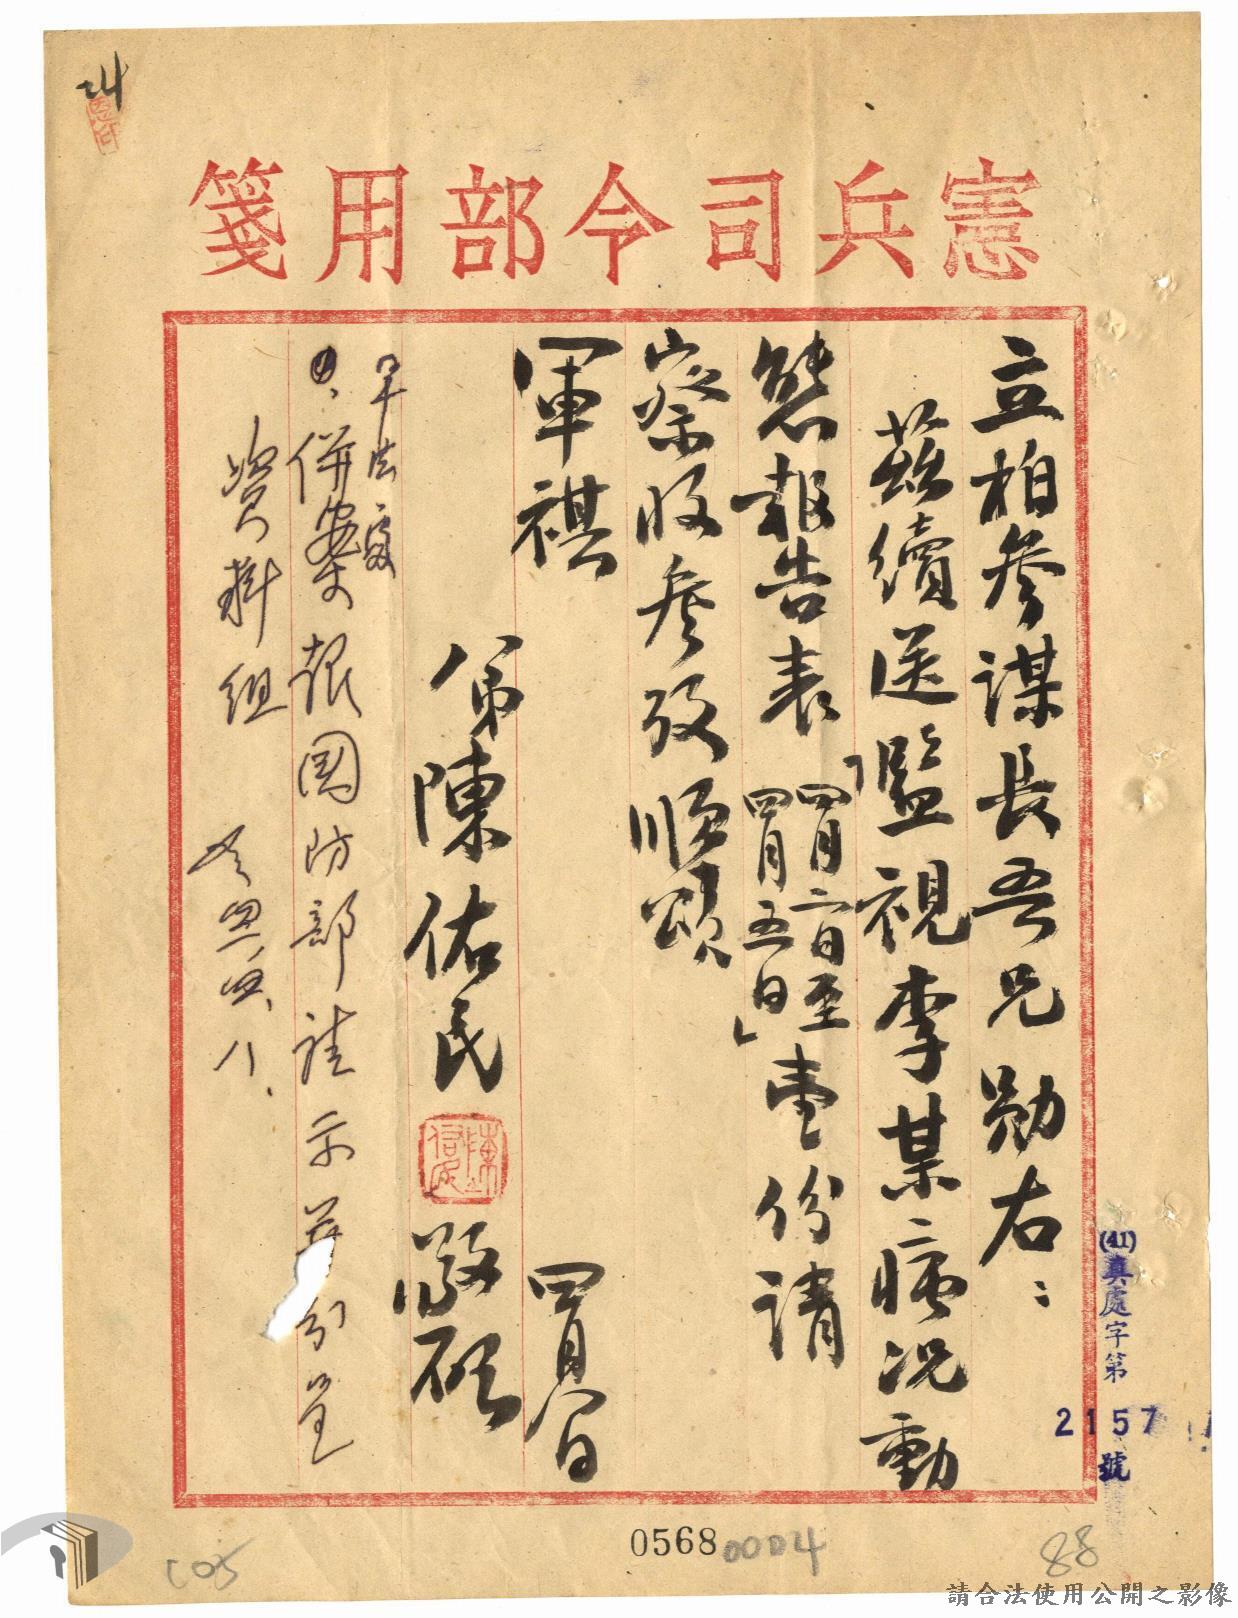 憲兵司令部用箋
立柏參謀長吾兄勛右：
茲續送「監視李某病況動
態報告表
四月二日至
四月五日」
壹份請
察收參攷順頌
軍祺
弟陳佑民
敬啟
四月八日
軍法處
併案報國防部請示並分呈
資料組
八
(41)真處字第
2157
號
0568
0004
88
105
24
請合法使用公開之影像